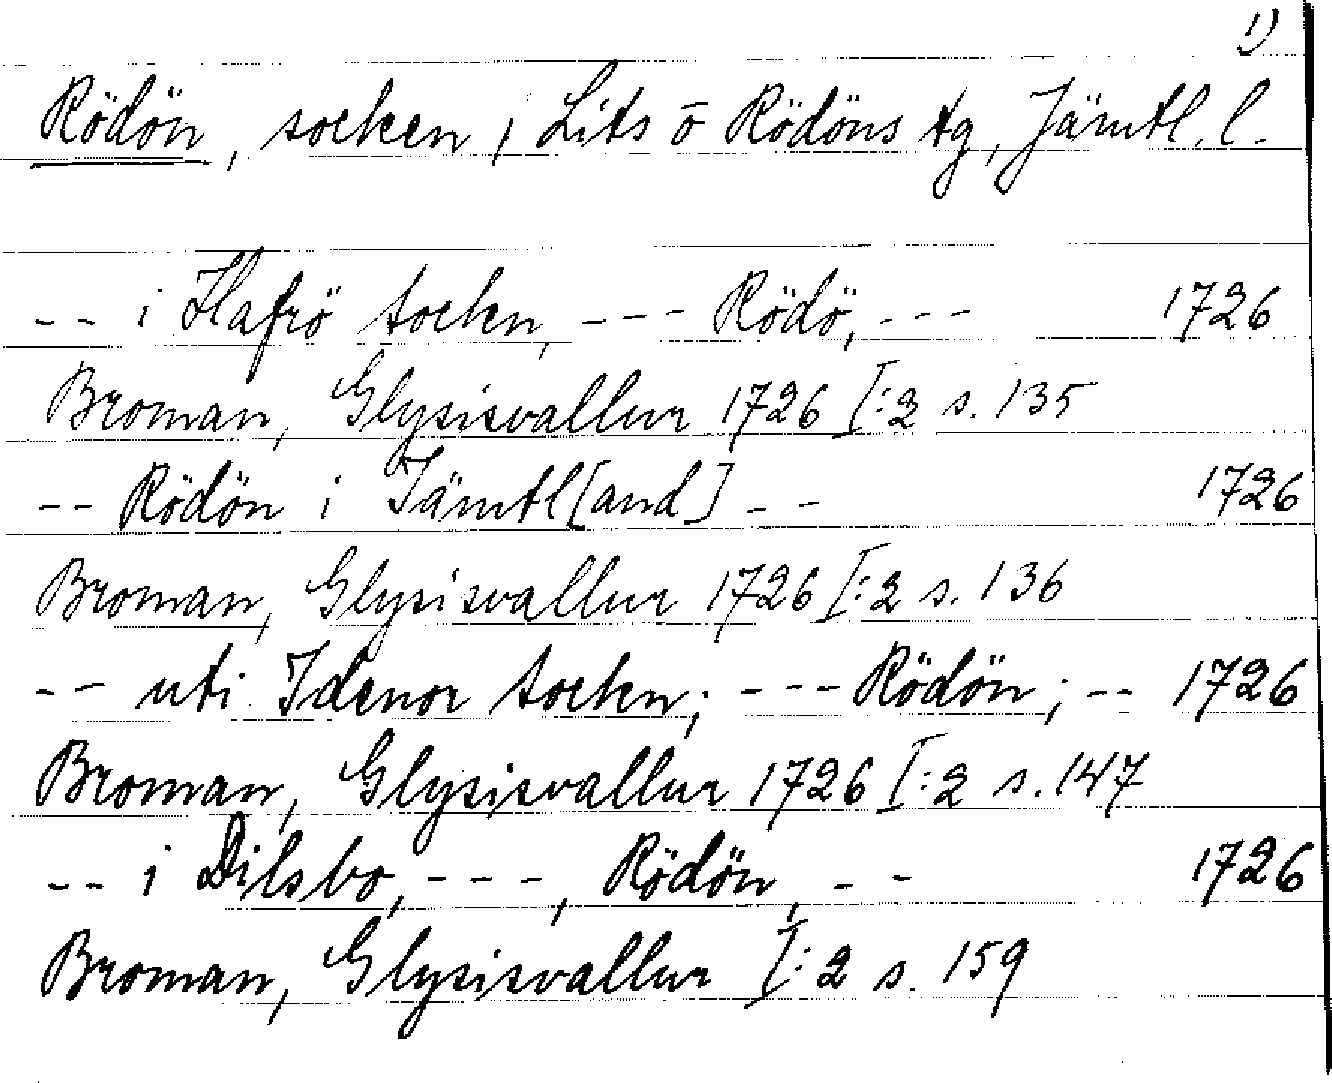 1)
Rödön, socken, Lits o Rödöns tg, Jämtl. l.
-- i Hafrö sockn, --- Rödö, --- 1726
Broman, Glysisvallur 1726 I:2 s. 135
-- Rödön i Jämtl[and] -- 1726
Broman, Glysisvallur 1726 I:2 s. 136
-- uti Idenor sockn; --- Rödön; -- 1726
Broman, Glysisvallur 1726 I:2 s. 147
-- i Dilsbo, ---, Rödön, -- 1726
Broman, Glysisvallur I:2 s. 159